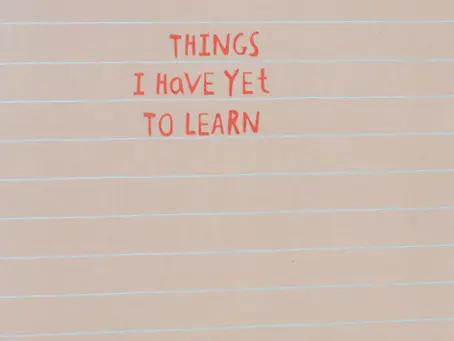 THINGS
I HaVE YEt
TO LEARN